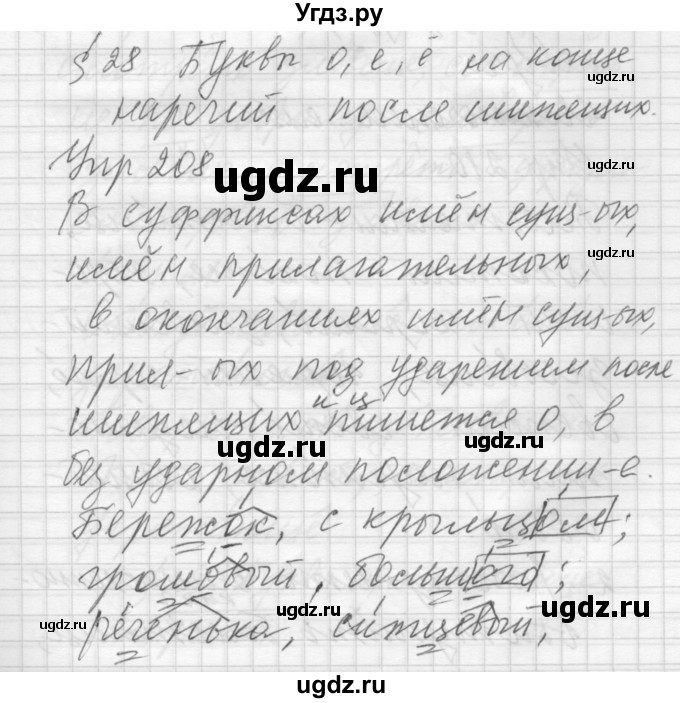 Угдз.ру
§ 28 Буквы о, е, ё на конце
ugdz.ru
наречий после шипящих.
ugdz.ru
Упр 208
ugdz.ru
ugdz.ru
В суффиксах имён сущ-ых,
ugdz.ru
имён прилагательных,
в окончаниях имён сущ-ых,
ugdz.ru
прил-ых под ударением после
шипящих и ц пишется о, в
ugdz.ru
ugdz.ru
без ударном положении-е.
Бережок, с крыльцом;
ugdz.ru
громовый, большого;
ugdz.ru
ugdz.ru
ugdz.ru
реченька, ситцевый,
ugdz.ru